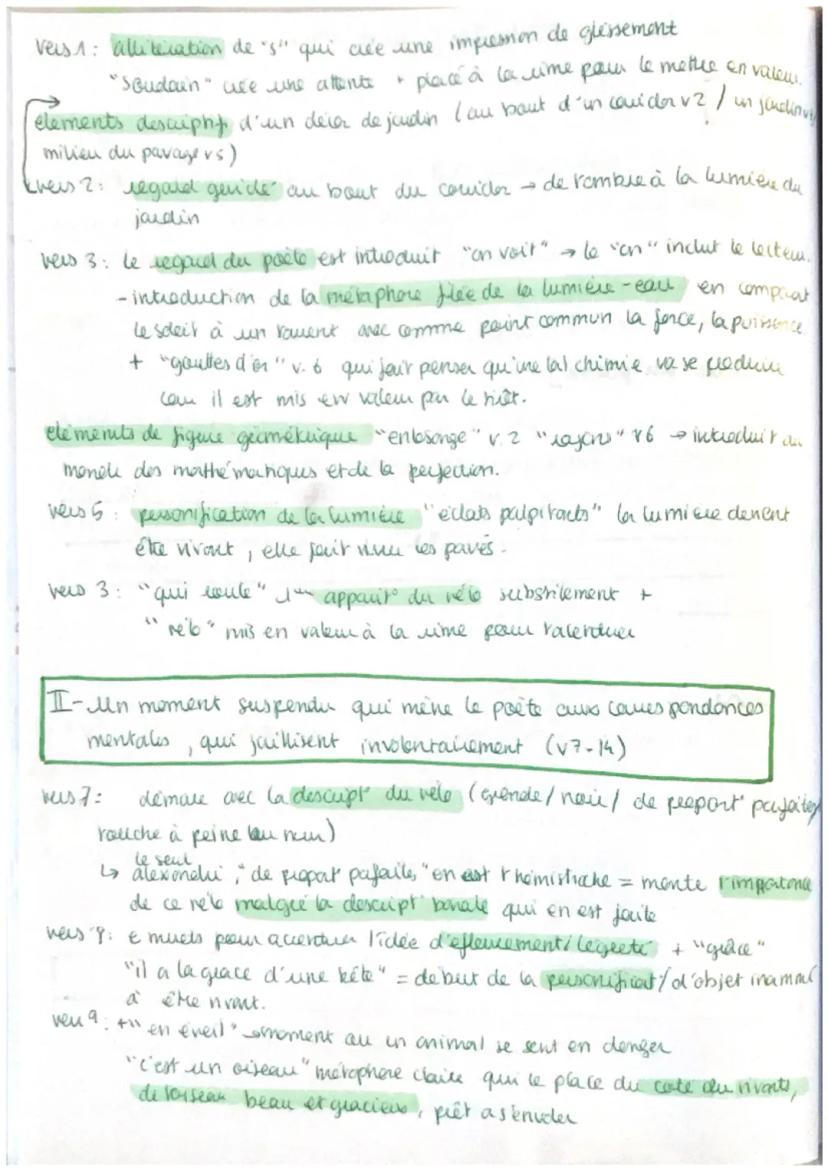 vers 1: allitération de "s" qui crée une impression de glissement
"Soudain" crée une attente + placé à la rime pour le mettre en valeur.
élements descriptifs d'un décor de jardin (au bout d'un couloir v2 / un jardin
milieu du pavage v5)
vers 2: regard guidé au bout du couloir → de l'ombre à la lumière du
jardin
vers 3: le regard du poète est introduit "on voit" → le "on" inclut le lecteur.
- introduction de la métaphore filée de la lumière-eau en comparant
le soleil à un torrent avec comme point commun la force, la puissance
+ "gouttes d'or" v.6 qui fait penser qu'une alchimie va se produire
car il est mis en valeur par le rejet.
elements de figure géométrique "en losange" v.2 "rayons" v6 → introduit au
monde des mathématiques et de la perfection.
vers 5: personification de la lumière "éclats palpitants" la lumière devient
être vivant, elle fait vivre les pavés.
vers 3: "qui roule" 1ère apparit° du vélo subtilement +
"vélo" mis en valeur à la rime pour l'accentuer
II- Un moment suspendu qui mène le poète aux correspondances
mentales, qui jaillisent involontairement (v7-14)
vers 7: démarre avec la descript° du vélo (grande / noir / de proport° parfaites
touche à peine au mur)
↳ le seul alexandrin, "de proport° parfaites" en est l'hémistiche = montre l'importance
de ce vélo malgré la descript° banale qui en est faite
vers 8: e muets pour accentuer l'idée d'efleurement / légèreté + "grâce"
"il a la grâce d'une bête" = début de la personificat° / d'objet inanimé
à être vivant.
vers 9: + "en éveil" moment où un animal se sent en danger
"c'est un oiseau" métaphore claire qui le place du coté des vivants,
de l'oiseau beau et gracieux, prêt à s'envoler